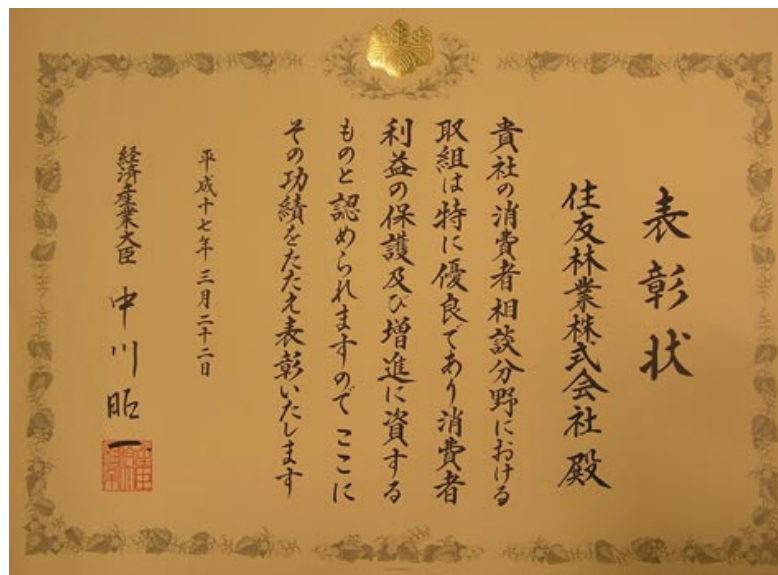 表彰状
住友林業株式会社殿
貴社の消費者相談分野における
取組は特に優良であり消費者
利益の保護及び増進に資する
ものと認められますのでここに
その功績をたたえ表彰いたします
平成十七年三月二十二日
経済産業大臣 中川昭一